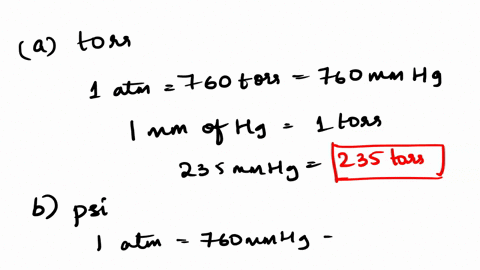 (a) torr
1 atm = 760 torr = 760 mm Hg
1 mm of Hg = 1 torr
235 mmHg = 235 torr
b) psi
1 atm = 760 mmHg =